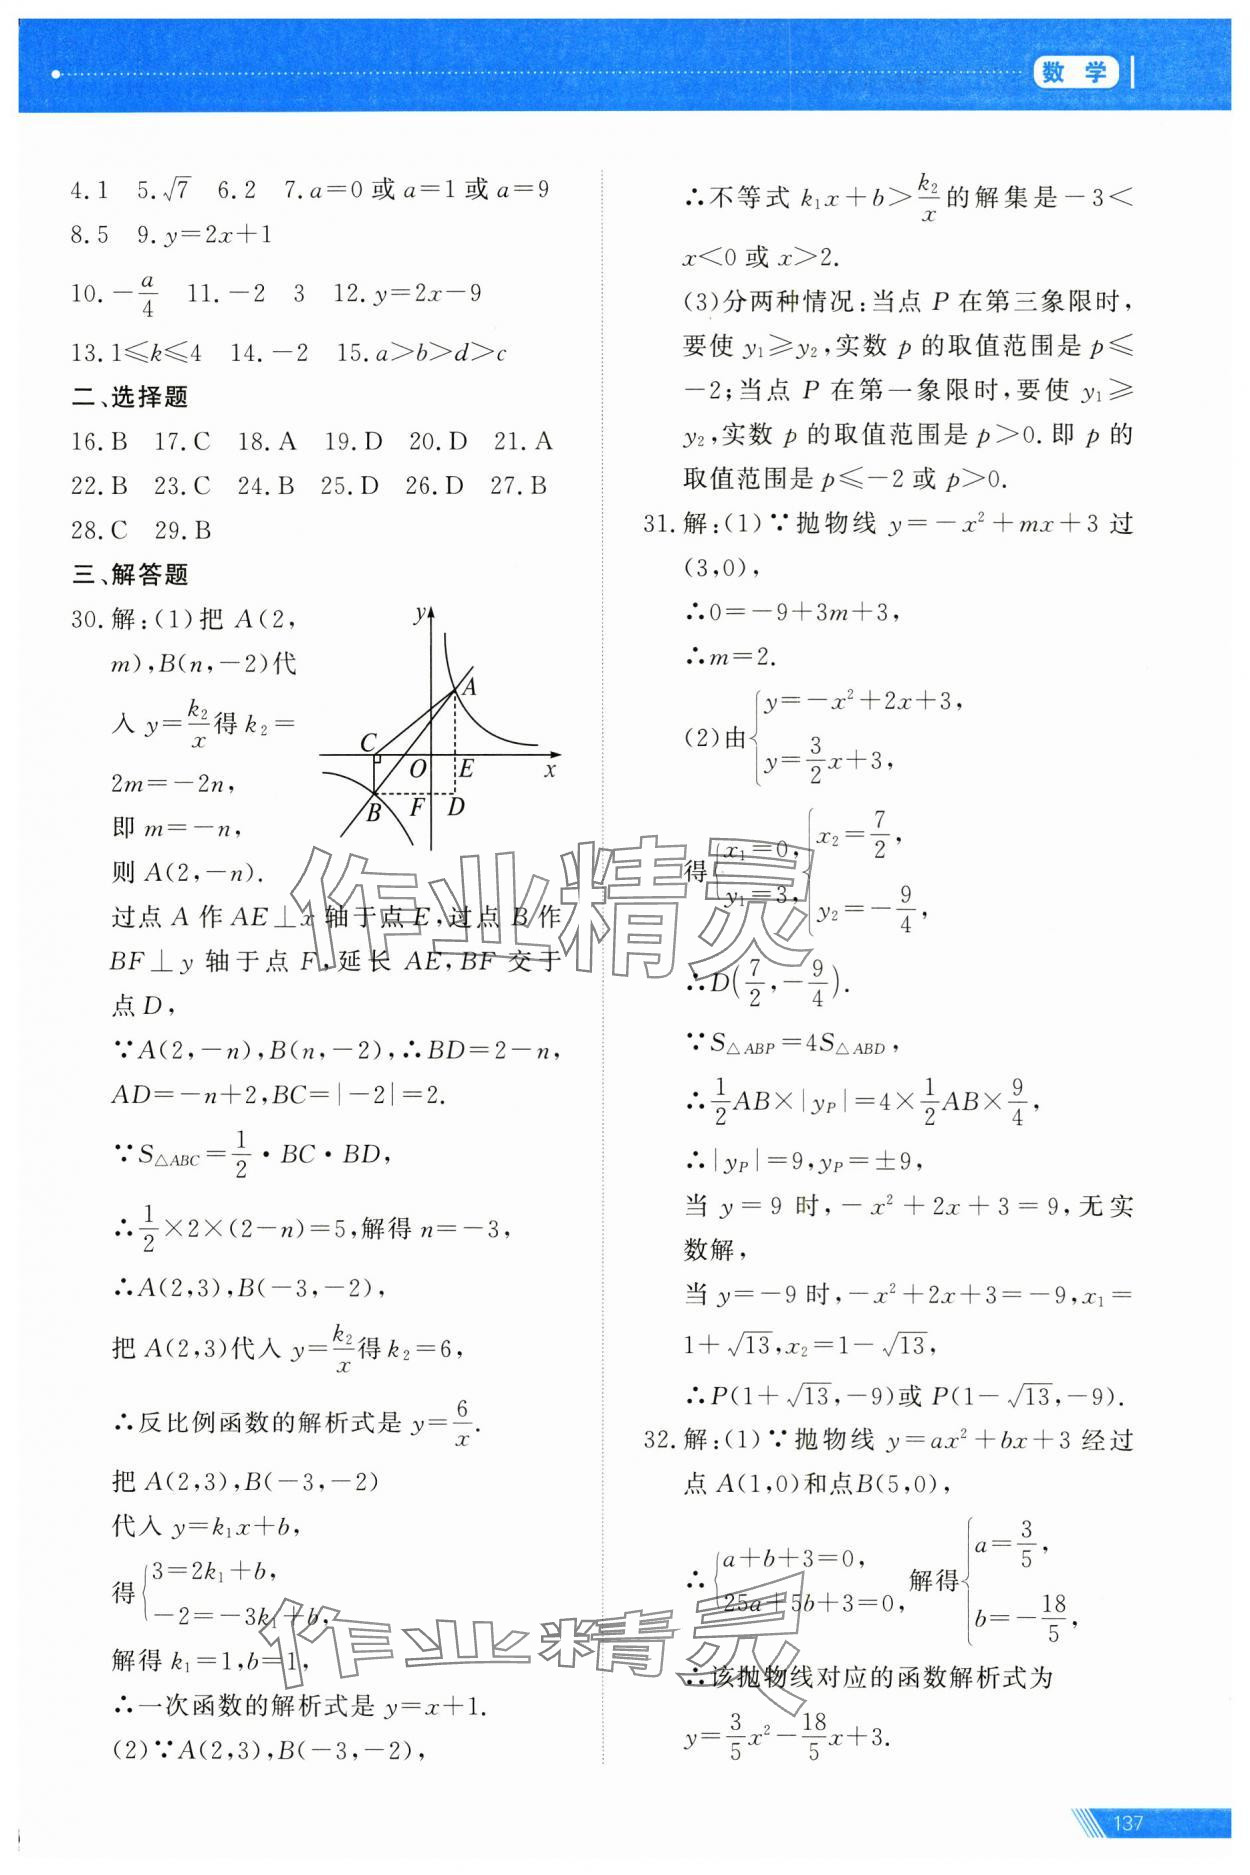 数 学
4.1 5.√7 6.2 7.a=0或a=1或a=9
8.5 9.y=2x+1
10.-a/4 11.-2 3 12.y=2x-9
13.1≤k≤4 14.-2 15.a>b>d>c
二、选择题
16.B 17.C 18.A 19.D 20.D 21.A
22.B 23.C 24.B 25.D 26.D 27.B
28.C 29.B
三、解答题
30.解:(1)把 A(2,
m),B(n,-2)代
入 y=k₂/x得 k₂=
2m=-2n,
即 m=-n,
则 A(2,-n).
y
A
C
O
E
x
B
F
D
过点 A 作 AE⊥x 轴于点 E,过点 B 作
BF⊥y 轴于点 F,延长 AE,BF 交于
点 D,
∵A(2,-n),B(n,-2),∴BD=2-n,
AD=-n+2,BC=|-2|=2.
∵S△ABC=1/2·BC·BD,
∴1/2×2×(2-n)=5,解得 n=-3,
∴A(2,3),B(-3,-2),
把 A(2,3)代入 y=k₂/x得 k₂=6,
∴反比例函数的解析式是 y=6/x.
把 A(2,3),B(-3,-2)
代入 y=k₁x+b,
得{3=2k₁+b,
-2=-3k₁+b,
解得 k₁=1,b=1,
∴一次函数的解析式是 y=x+1.
(2)∵A(2,3),B(-3,-2),
∴不等式 k₁x+b>k₂/x的解集是-3<
x<0 或 x>2.
(3)分两种情况:当点 P 在第三象限时,
要使 y₁≥y₂,实数 p 的取值范围是 p≤
-2;当点 P 在第一象限时,要使 y₁≥
y₂,实数 p 的取值范围是 p>0.即 p 的
取值范围是 p≤-2 或 p>0.
31.解:(1)∵抛物线 y=-x²+mx+3 过
(3,0),
∴0=-9+3m+3,
∴m=2.
(2)由{y=-x²+2x+3,
y=3/2x+3,
得{x₁=0, {x₂=7/2,
y₁=3, y₂=-9/4,
∴D(7/2,-9/4).
∵S△ABP=4S△ABD,
∴1/2AB×|yP|=4×1/2AB×9/4,
∴|yP|=9,yP=±9,
当 y=9 时,-x²+2x+3=9,无实
数解,
当 y=-9 时,-x²+2x+3=-9,x₁=
1+√13,x₂=1-√13,
∴P(1+√13,-9)或 P(1-√13,-9).
32.解:(1)∵抛物线 y=ax²+bx+3 经过
点 A(1,0)和点B(5,0),
∴{a+b+3=0, 解得{a=3/5,
25a+5b+3=0, b=-18/5,
∴该抛物线对应的函数解析式为
y=3/5x²-18/5x+3.
作业精灵
作业精灵
137